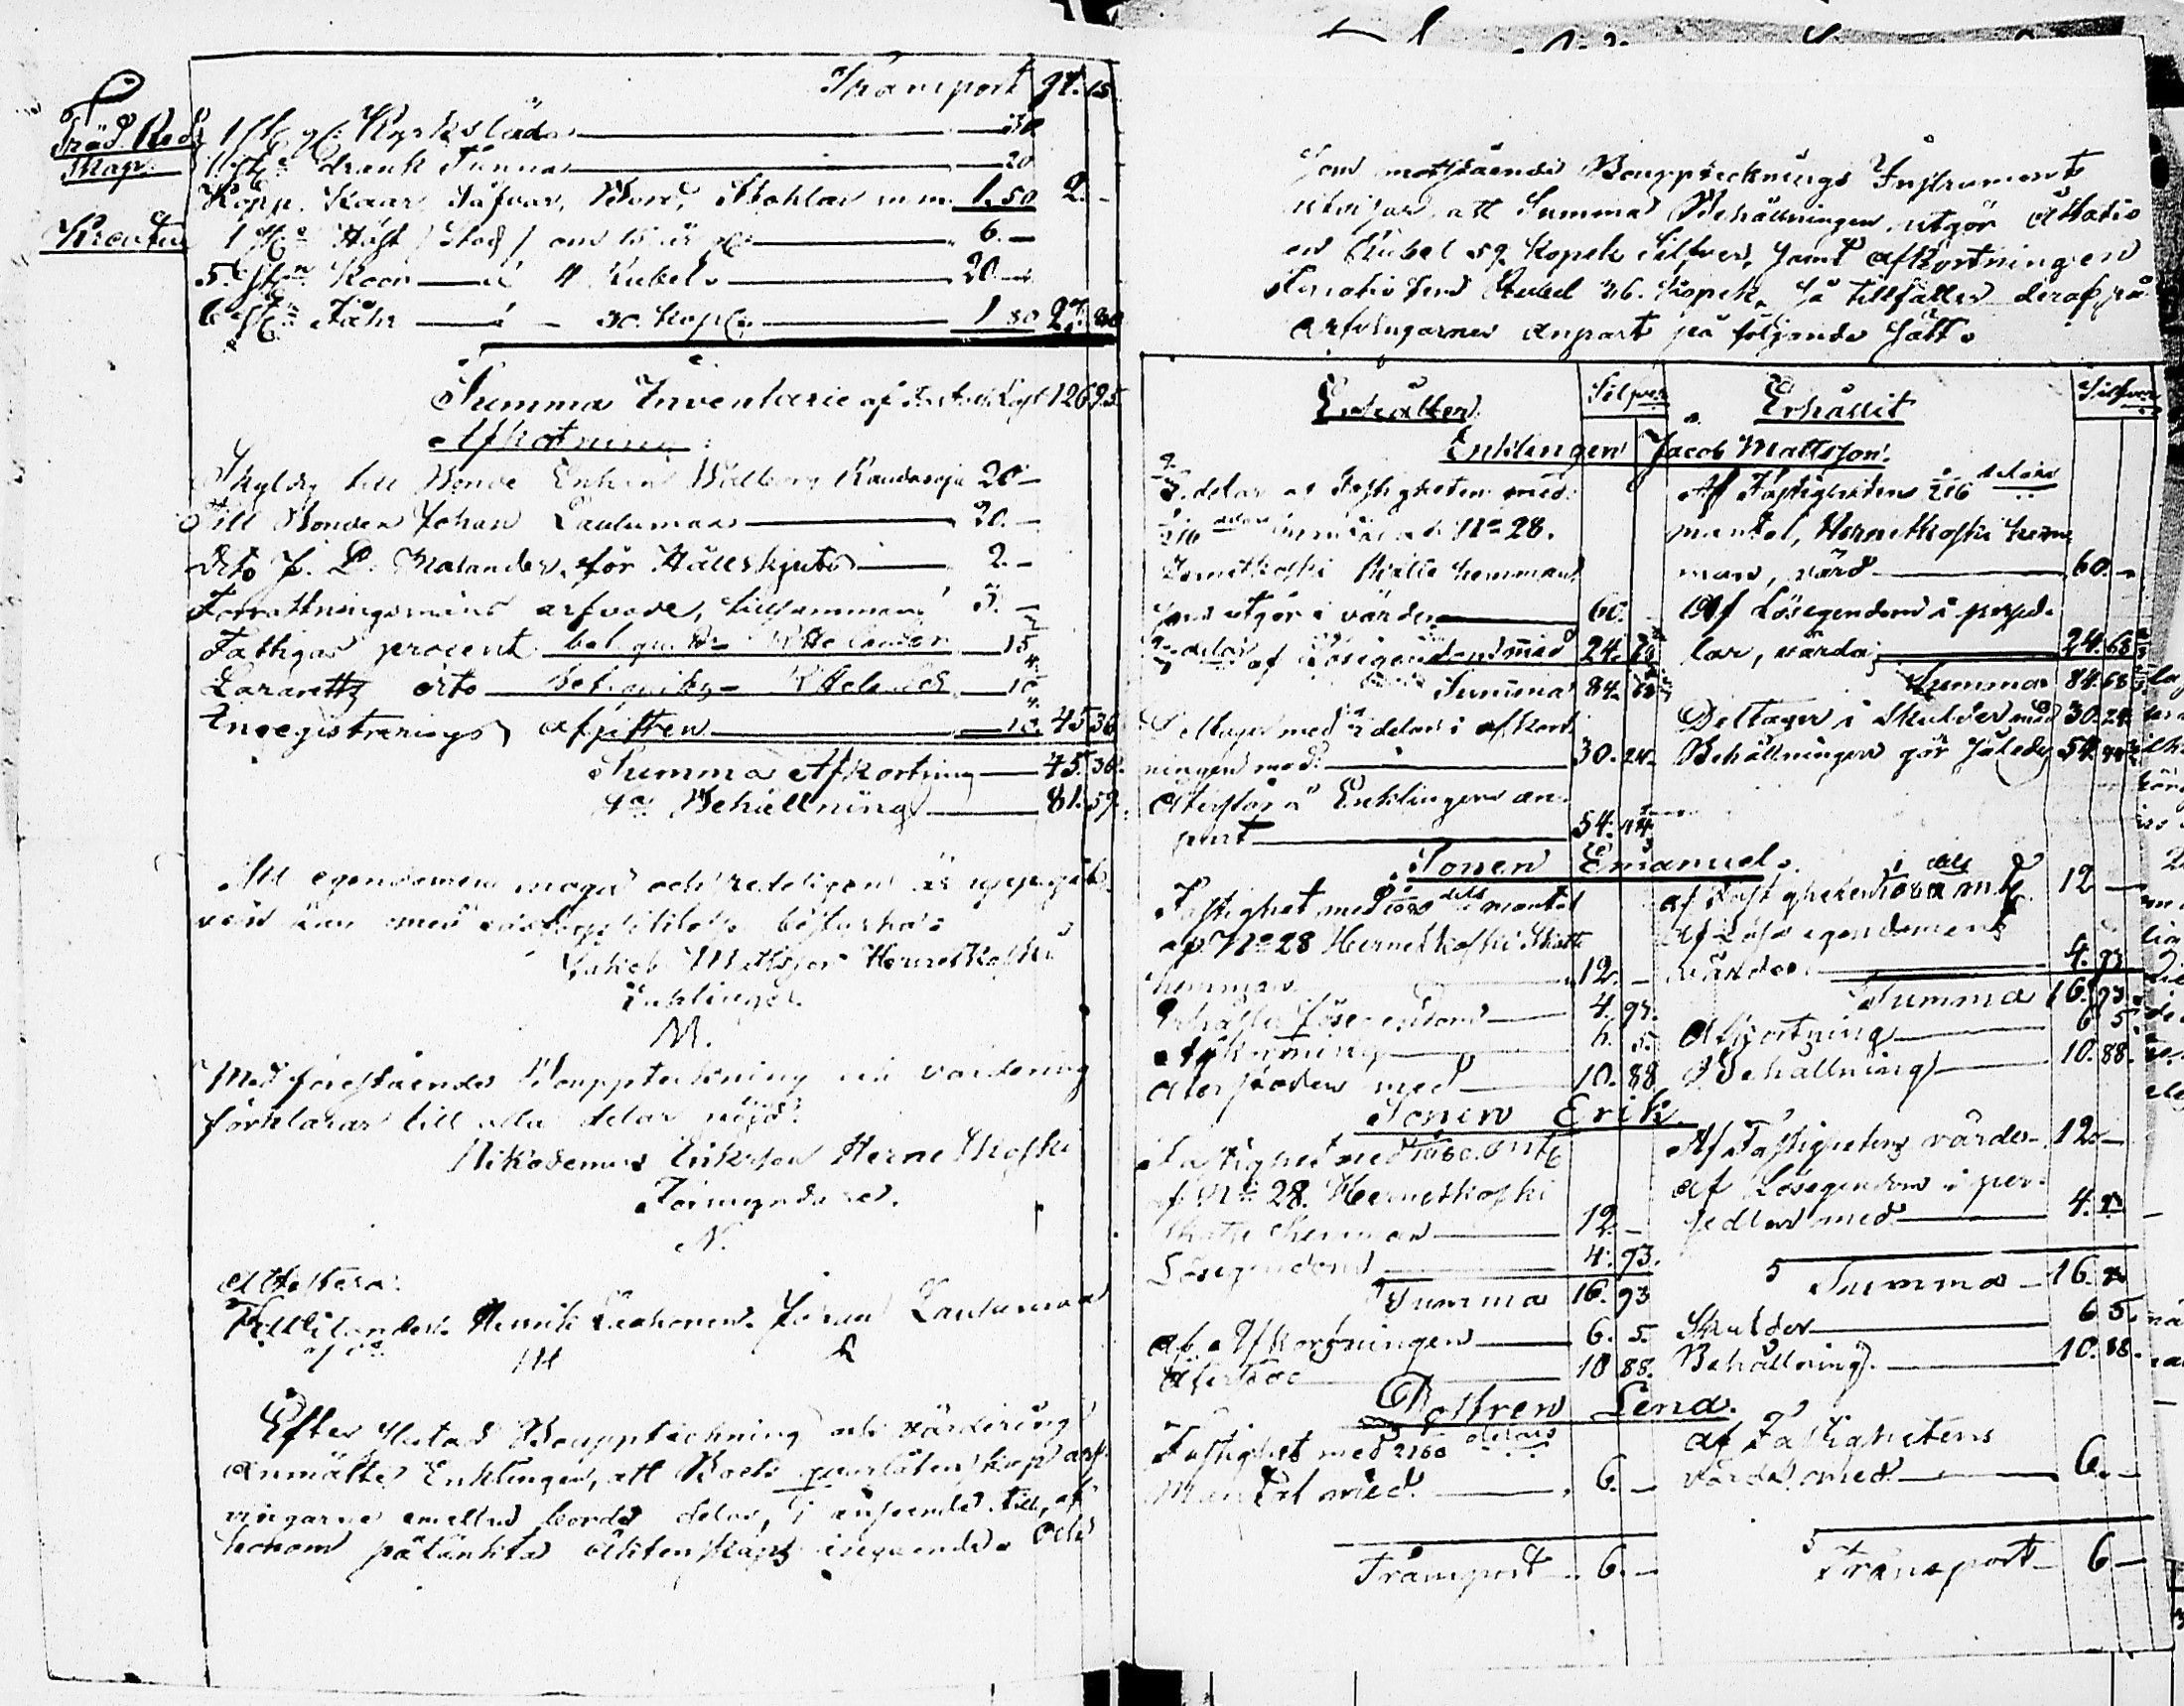 Transport 97. 15
Träd Red
skap
1 st. gl. Kyrksläda 30
1 st. drank Tunna 20
Kopp. Kaar, Såfvar, Bord, Stohlar m.m. 1. 50 2. -
Kreatur
1 st. Häst / Stod / om 15 år gl. 6. -
5. st. Koor a 4 Rubel 20. -
6 st. Fåhr a - 30. Kop. 1 80 27. 80
Summa Inventarie 126 95
Afkortning:
Skyldig till Bonde Enkan Raudasoja 20 -
Till Bonden Johan Lautamaa 20. -
dito J. L. för Hållskjuts 2. -
Förrättningsmäns arfvode, tillsammans 3. -
Fattigas procent 15
Lazaretts dito 10
Enregistrerings afgiften 10. 45 36
Summa Afkortning 45. 36.
Behållning 81. 59.
All egendomen noga och redeligen är uppgif-
ven kan med edsförpliktelse bestyrkas
Jakob Mattsson Hernetkoski
Enklingen.
M.
Med förestående Bouppteckning och värdering
förklarar till alla delar nöjd.
Nikodemus Eriksson Hernetkoski
Förmyndare.
N.
Attestera:
Henrik Johan Lautamaa
Efter slutad Bouppteckning och värdering
anmälte Enklingen, att Boets qvarlåtenskap arf-
vingarne emellan borde delas, i anseende till, af
honom påtänkta äktenskaps ingående. Och
Som motstående Boupptecknings Instrument
utvisar, att Summa Behållningen utgör Åttatio
en Rubel 59. Kopek Silfver, samt afkortningen
Rubel 36. Kopek, så tillfaller deraf, på
arfvingarnes anpart på följande sätt.
Erhåller Silfver Erhållit Silfver
Enklingen Jacob Mattsson.
delar af Fastigheten med
216 delar mantal af No 28.
Hernetkoski Skatte hemman
som utgör i värde 60. -
delar af Lösegendom med 24. 68
Summa 84. 68
Deltager med delar i afkort-
ningen med 30. 24.
Återstår å Enklingens an-
part 54. 44.
Af Fastigheten 216 delars
mantal, Hernetkoski hem-
man, värd 60. -
Af Lösegendom i persed-
lar, värda 24. 68
Summa 84. 68
Deltager i Skulder med 30. 24
Behållningen gör således 54. 44
Sonen Emanuel.
Fastighet med 1080 dels mantal
af No 28 Hernetkoski Skatte
hemman 12. -
Erhåller Lösegendom 4. 93.
Afkortning 6. 5.
Återstoden med 10. 88
af Fastigheten 1080 m. 12 -
Af Lös egendomens
värde 4. 93
Summa 16. 93
Afkortning 6 5.
Behållning 10. 88.
Sonen Erik
Fastighet med 1080. mt.
af No 28. Hernetkoski
Skatte hemman 12. -
Lösegendom 4. 93.
Summa 16. 93
af Afkortningen 6. 5.
Återstod 10 88.
Af Fastighetens värde 12. -
af Lösegendom i per-
sedlar med 4. 93
Summa 16. 93
Skulder 6 5.
Behållning 10. 88.
Dottren Lena.
Fastighet med 2160 delars
Mantal med 6. -
Transport 6. -
af Fastighetens
värde med 6. -
Transport 6 -